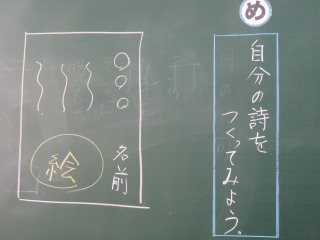 め
自分の詩を
つくってみよう。
名前
絵